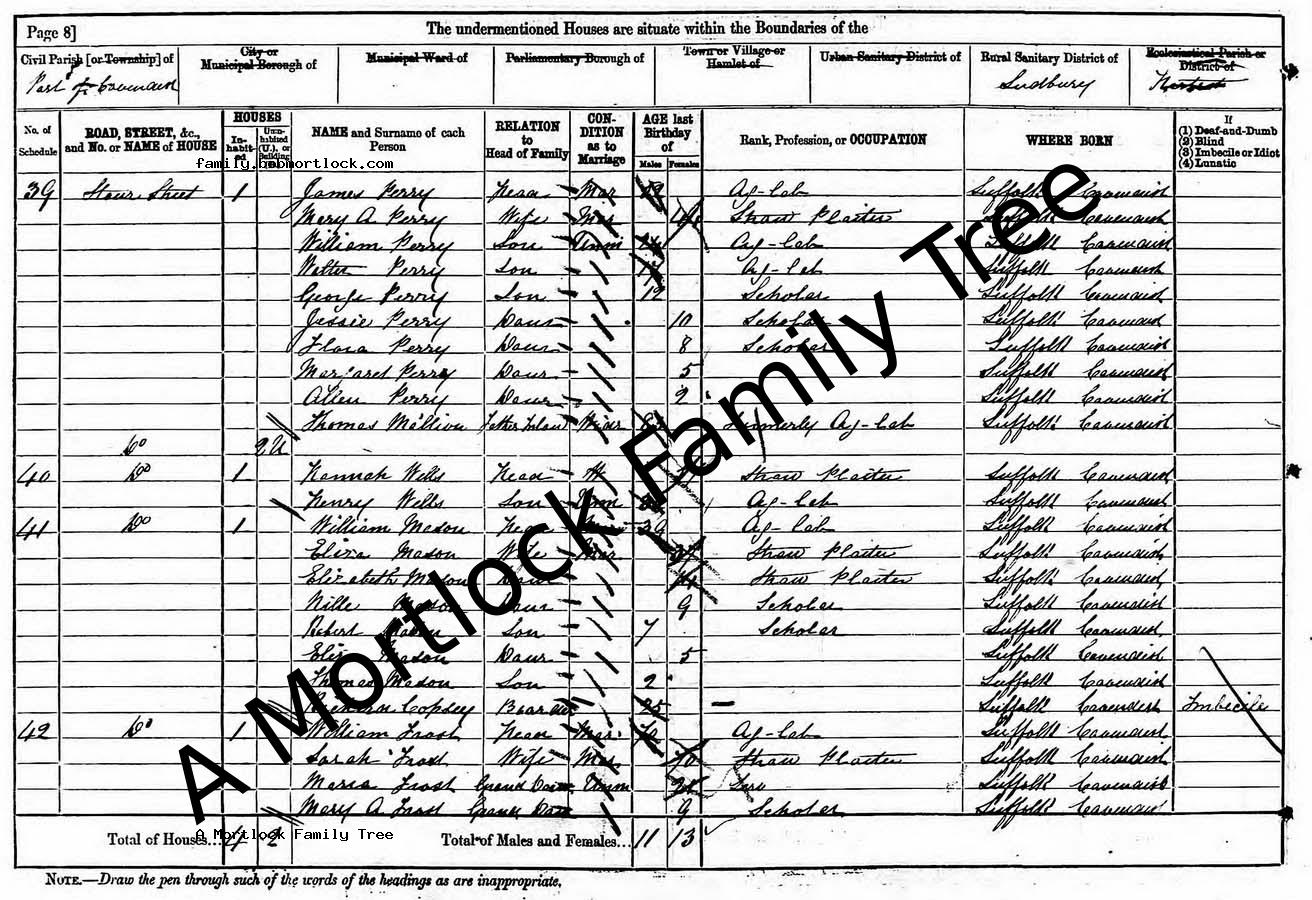 Page 8]
The undermentioned Houses are situate within the Boundaries of the
Civil Parish [or Township] of
City or Municipal Borough of
Municipal Ward of
Parliamentary Borough of
Town or Village or Hamlet of
Urban Sanitary District of
Rural Sanitary District of
Ecclesiastical Parish or District of
Part of Cavendish
Sudbury
No. of Schedule
ROAD, STREET, &c., and No. or NAME of HOUSE
HOUSES
In-habit-ed
Unin-habited (U.), or Building
NAME and Surname of each Person
RELATION to Head of Family
CON-DITION as to Marriage
AGE last Birthday of
Males
Females
Rank, Profession, or OCCUPATION
WHERE BORN
If
(1) Deaf-and-Dumb
(2) Blind
(3) Imbecile or Idiot
(4) Lunatic
family.bobmortlock.com
39 Stour Street 1 James Perry Head Mar Ag-Lab Suffolk Cavendish
Mary A Perry Wife Mar Straw Plaiter Suffolk Cavendish
William Perry Son Unm Ag-Lab Suffolk Cavendish
Walter Perry Son Ag-Lab Suffolk Cavendish
George Perry Son 12 Scholar Suffolk Cavendish
Jessie Perry Daur 10 Scholar Suffolk Cavendish
Flora Perry Daur 8 Scholar Suffolk Cavendish
Margaret Perry Daur 5 Suffolk Cavendish
Allen Perry Daur 2 Suffolk Cavendish
Thomas Father Inlaw Widr Formerly Ag-Lab Suffolk Cavendish
Do 2 U
40 Do 1 Hannah Wells Head W Straw Plaiter Suffolk Cavendish
Henry Wells Son Unm Ag-Lab Suffolk Cavendish
41 Do 1 William Mason Head 39 Ag-Lab Suffolk Cavendish
Eliza Mason Wife Mar Straw Plaiter Suffolk Cavendish
Elizabeth Mason Daur Straw Plaiter Suffolk Cavendish
Mason Daur 9 Scholar Suffolk Cavendish
Robert Mason Son 7 Scholar Suffolk Cavendish
Eliza Mason Daur 5 Suffolk Cavendish
Thomas Mason Son 2 Suffolk Cavendish
Copsey Boarder 25 – Suffolk Cavendish Imbecile
42 Do 1 William Frost Head Mar Ag-Lab Suffolk Cavendish
Sarah Frost Wife Mar 70 Straw Plaiter Suffolk Cavendish
Maria Frost Grand Daur Unm Suffolk Cavendish
Mary A Frost Grand Daur 9 Scholar Suffolk Cavendish
Total of Houses... 4 2
Total of Males and Females... 11 13
A Mortlock Family Tree
A Mortlock Family Tree
NOTE.—Draw the pen through such of the words of the headings as are inappropriate.